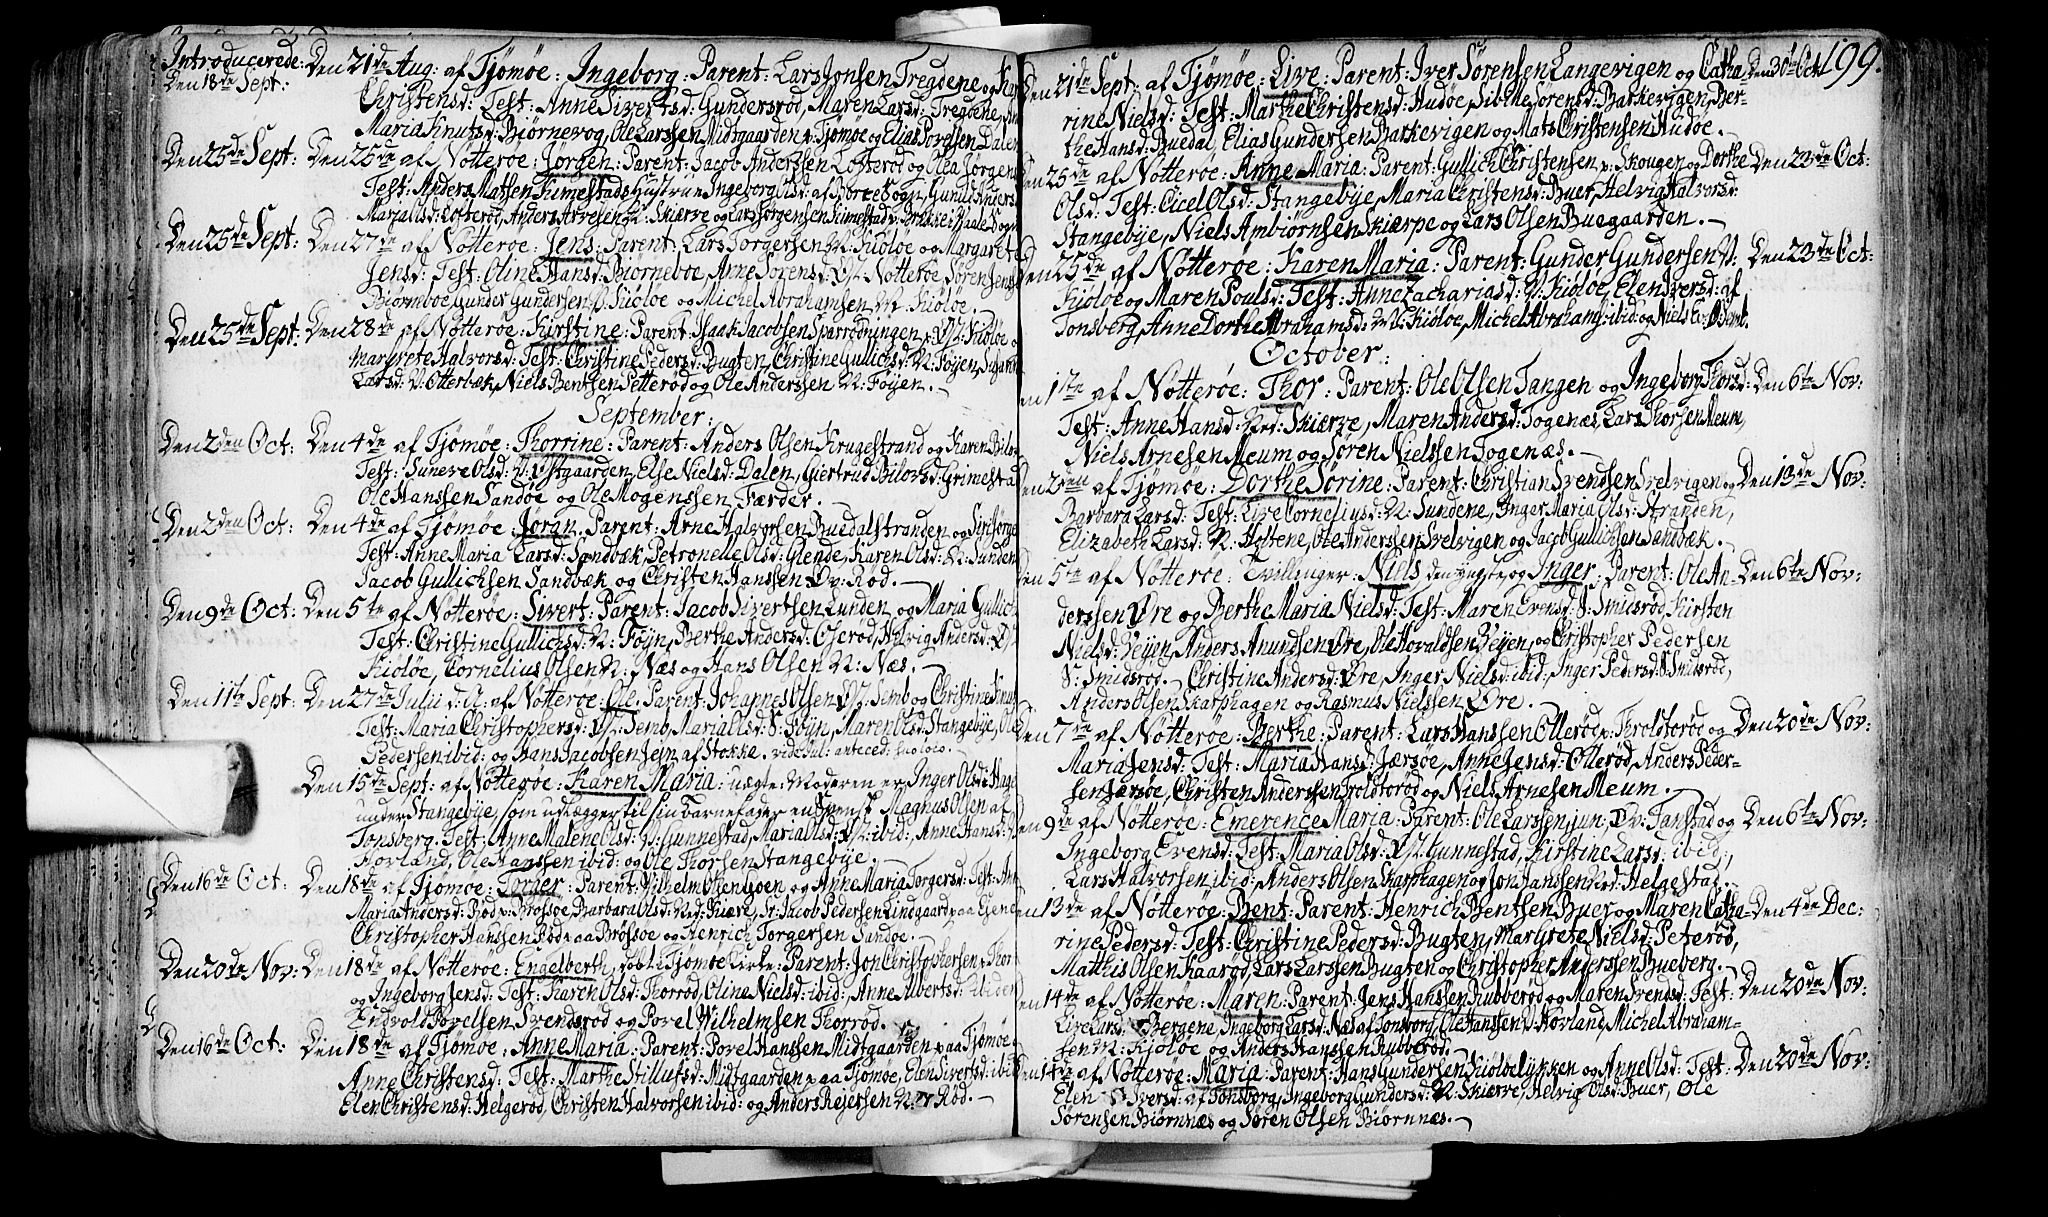 Introducerede: Den 21de Aug: af Tjömöe: Ingeborg: Parent: Lars Jonsen Tregdene og
Den 18de Sept:
Christensd: Test: Anne Sivertsd: Gundersröd, Maren Larsd: Tregdene,
Maria Knutsd: Biörnevog, Ole Larssen Midtgaarden p: Tjömöe og Elias Dalen
Den 25de Sept: Den 25de af Nötteröe: Jörgen: Parent: Jacob Anderssen Lofteröd og Olea Jörgens
Test: Anders Matsen Kimestads Hustrue Ingeborg Olsd: af
Maria Olsd: Lofteröd, Anders Arvesen N: Skierve og Lars Jörgensen Kimestad
Den 25de Sept: Den 27de af Nötteröe: Jens: Parent: Lars Torgersen N: Kiölöe og Margarete
Jensd: Test: Oline Hansd: Biörneboe, Arne Sörensd: Nötteröe, Sören Jens
Biörneboe, Gunder Gundersen N: Kiölöe og Michel Abrahamsen N: Kiölöe.
Den 25de Sept: Den 28de af Nötteröe: Kirstine: Parent: Isaak Jacobsen Sparrödningen Kiölöe
Margrete Halvorsd: Test: Christine Pedersd: Bugten, Christine Gullichsd: N: Föyen,
Larsd: N: Otterbæk, Niels Bentsen Petteröd og Ole Anderssen N: Föyen.
September:
Den 2den Oct: Den 4de af Tjömöe: Thorrine: Parent: Anders Olsen Krugestrand og Karen
Test: Suneve Olsd: Ostgaarden, Else Nielsd: Dalen, Giertrud Grimestad
Ole Hanssen Sandöe og Ole Mogenssen Færder.
Den 2den Oct: Den 4de af Tjömöe: Jöran: Parent: Arne Halvorsen Buedalstranden og Siri
Test: Anne Maria Larsd: Sandbæk, Petronelle Olsd: Glende, Karen Olsd: N: Sunden
Jacob Gullichsen Sandbæk og Christen Hanssen Öv: Röd.
Den 9de Oct: Den 5te af Nötteröe: Sivert: Parent: Jacob Sivertsen Lunden og Maria Gullich
Test: Christine Gullichsd: N: Föyn, Berthe Andersd: Oseröd, Helvig Andersd:
Kiölöe, Cornelius Olsen N: Næs og Hans Olsen N: Næs.
Den 11te Sept: Den 27de Julii d: A: af Nötteröe: Ole: Parent: Johannes Olsen Semb og Christine
Test: Maria Christophersd: Semb, Maria Olsd: S: Föyn, Maren Olsd: Stangebÿe, Ole
Pedersen ibid: og Hans Jacobsen Sem af Stokke.
Den 15de Sept: af Nötteröe: Karen Maria: uægte: Moderen er Inger Olsd:
under Stangebÿe, som udlægger til sin Barnefader en Svensk Magnus Olsen af
Tonsberg. Test: Anne Malene Olsd: N: Gunnestad, Maria Olsd: ibid:, Anne Hansd:
Hovland, Ole Hanssen ibid: og Ole Thorsen Stangebÿe.
Den 16de Oct: Den 18de af Tjömöe: Torger: Parent: Vilhelm Olsen Goen og Anne Maria Torgersd: Test:
Maria Andersd: Röd p: Brötsöe, Barbara Olsd: Ned: Kiære, Sr: Jacob Pedersen Lindgaard
Christopher Hanssen Röd paa Brötsöe og Henrich Torgersen Sandöe.
Den 20de Nov: Den 18de af Nötteröe: Engelberth, döbt i Tjömöe Kirke: Parent: Jon Christophersen
og Ingeborg Jensd: Test: Karen Olsd: Thorröd, Oline Nielsd: ibid:, Anne Albertsd: ibidem
Endvold Povelsen Svendsröd og Povel Wilhelmsen Thorröd.
Den 16de Oct: Den 18de af Tjömöe: Anne Maria: Parent: Povel Hanssen Midtgaarden paa Tjömöe
Anne Christensd: Test: Marthe Stillufsd: Midtgaarden paa Tjömöe, Elen Sivertsd: ibid
Elen Christensd: Helgeröd, Christen Halvorsen ibid: og Anders Rejersen N: Röd.
199.
Den 21de Sept: af Tjömöe: Live: Parent: Iver Sörensen Langevigen og Catha- Den 30te Oct:
rine Nielsd: Test: Marthe Christensd: Hudöe, Sibille Sörensd: Barkevigen, Ber-
the Hansd: Buedal, Elias Gundersen Barkevigen og Mats Christensen Hudöe.
Den 25de af Nötteröe: Anne Maria: Parent: Gullich Christensen p: Skougen og Dorthe Den 23de Oct:
Olsd: Test: Cicel Olsd: Stangebÿe, Maria Christensd: Buer, Helvig Halvorsd:
Stangebÿe, Niels Ambiörnsen Skiærpe og Lars Olsen Buegaarden.
Den 25de af Nötteröe: Karen Maria: Parent: Gunder Gundersen N: Den 23de Oct:
Kiölöe og Maren Poulsd: Test: Anne Zachariasd: N: Kiölöe, Elen Iversd: af
Tonsberg, Anne Dorthe Abrahamsd: N: Kiölöe, Michel Abrahams: ibid: og Niels
October:
Den 1ste af Nötteröe: Thor: Parent: Ole Olsen Tangen og Ingeborg Thorsd: Den 6te Nov:
Test: Anne Hansd: Ned: Skiærve, Maren Andersd: Togenæs, Lars Thorsen Meum,
Niels Arnesen Meum og Sören Nielssen Togenæs.
Den 2den af Tjömöe: Dorthe Sörine: Parent: Christian Svendsen Svelvigen og Den 13de Nov:
Barbara Larsd: Test: Live Corneliusd: N: Sundene, Inger Maria Olsd: Stranden,
Elizabeth Larsd: N: Holtene, Ole Anderssen Svelvigen og Jacob Gullichsen Sandbæk.
Den 5te af Nötteröe: Tvillinger: Niels den yngste og Inger: Parent: Ole An- Den 6te Nov:
derssen Öre og Berthe Maria Nielsd: Test: Maren Evensd: S: Smidsröd, Kirsten
Nielsd: Veÿen, Anders Amundsen Öre, Ole Hovaldsen Veÿen, og Christopher Pedersen
S: Smidsröd. Christine Andersd: Öre, Inger Nielsd: ibid:, Inger Pedersd: S: Smidsröd,
Anders Olsen Skarphagen og Rasmus Nielssen Öre.
Den 7de af Nötteröe: Berthe: Parent: Lars Hanssen Olleröd p: Troldtoröd og Den 20de Nov:
Maria Jensd: Test: Maria Hansd: Jærsöe, Anne Jensd: Olleröd, Anders Peder-
sen Jærsöe, Christen Anderssen Troldtoröd og Niels Arnesen Meum.
Den 9de af Nötteröe: Emerence Maria: Parent: Ole Larssen jun, Öv: Tanstad og Den 6te Nov:
Ingeborg Evensd: Test: Maria Olsd: Gunnestad, Kirstine Larsd: ibid:,
Lars Halvorsen ibid:, Anders Olsen Skarphagen og Jon Hanssen Ned: Helgestad.
Den 13de af Nötteröe: Bent: Parent: Henrich Bentsen Buer og Maren Catha- Den 4de Dec:
rine Pedersd: Test: Christine Pedersd: Bugten, Margrete Nielsd: Peteröd,
Mathis Olsen Kaaröd, Lars Larssen Bugten og Christopher Anderssen Bueberg.
Den 14de af Nötteröe: Maren: Parent: Jens Hanssen Rubberöd og Maren Svendsd: Test: Den 20de Nov:
Live Larsd: Bergene, Ingeborg Larsd: Næs af Tonsberg, Ole Hanssen Hovland, Michel Abraham-
sen N: Kiölöe og Anders Hanssen Rubberöd.
Den 14de af Nötteröe: Maria: Parent: Hans Gundersen Kiölöelykken og Anne Olsd: Test: Den 20de Nov:
Elen Iversd: af Tonsberg, Ingeborg Gundersd: N: Skiærve, Helvig Olsd: Buer, Ole
Sörensen Biörnnæs og Sören Olsen Biörnnæs.